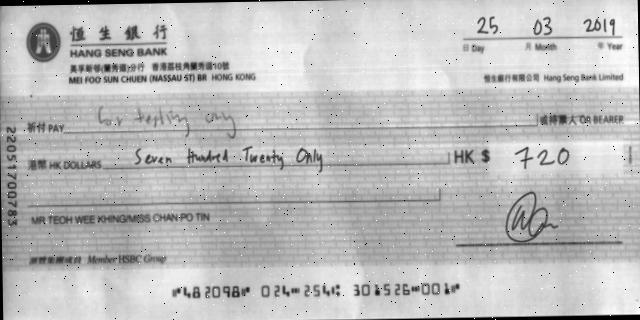 恒生銀行
HANG SENG BANK
美孚新邨(蘭秀道)分行 香港荔枝角蘭秀道10號
MEI FOO SUN CHUEN (NASSAU ST) BR HONG KONG
25 03 2019
日 Day 月 Month 年 Year
恒生銀行有限公司 Hang Seng Bank Limited
祈付 PAY for testing only 或持票人 OR BEARER
港幣 HK DOLLARS Seven Hundred Twenty Only HK $ 720
MR TEOH WEE KHING/MISS CHAN PO TIN
滙豐集團成員 Member HSBC Group
22051700783
⑈482098⑈ 024⑉254⑆ 301526⑉001⑈